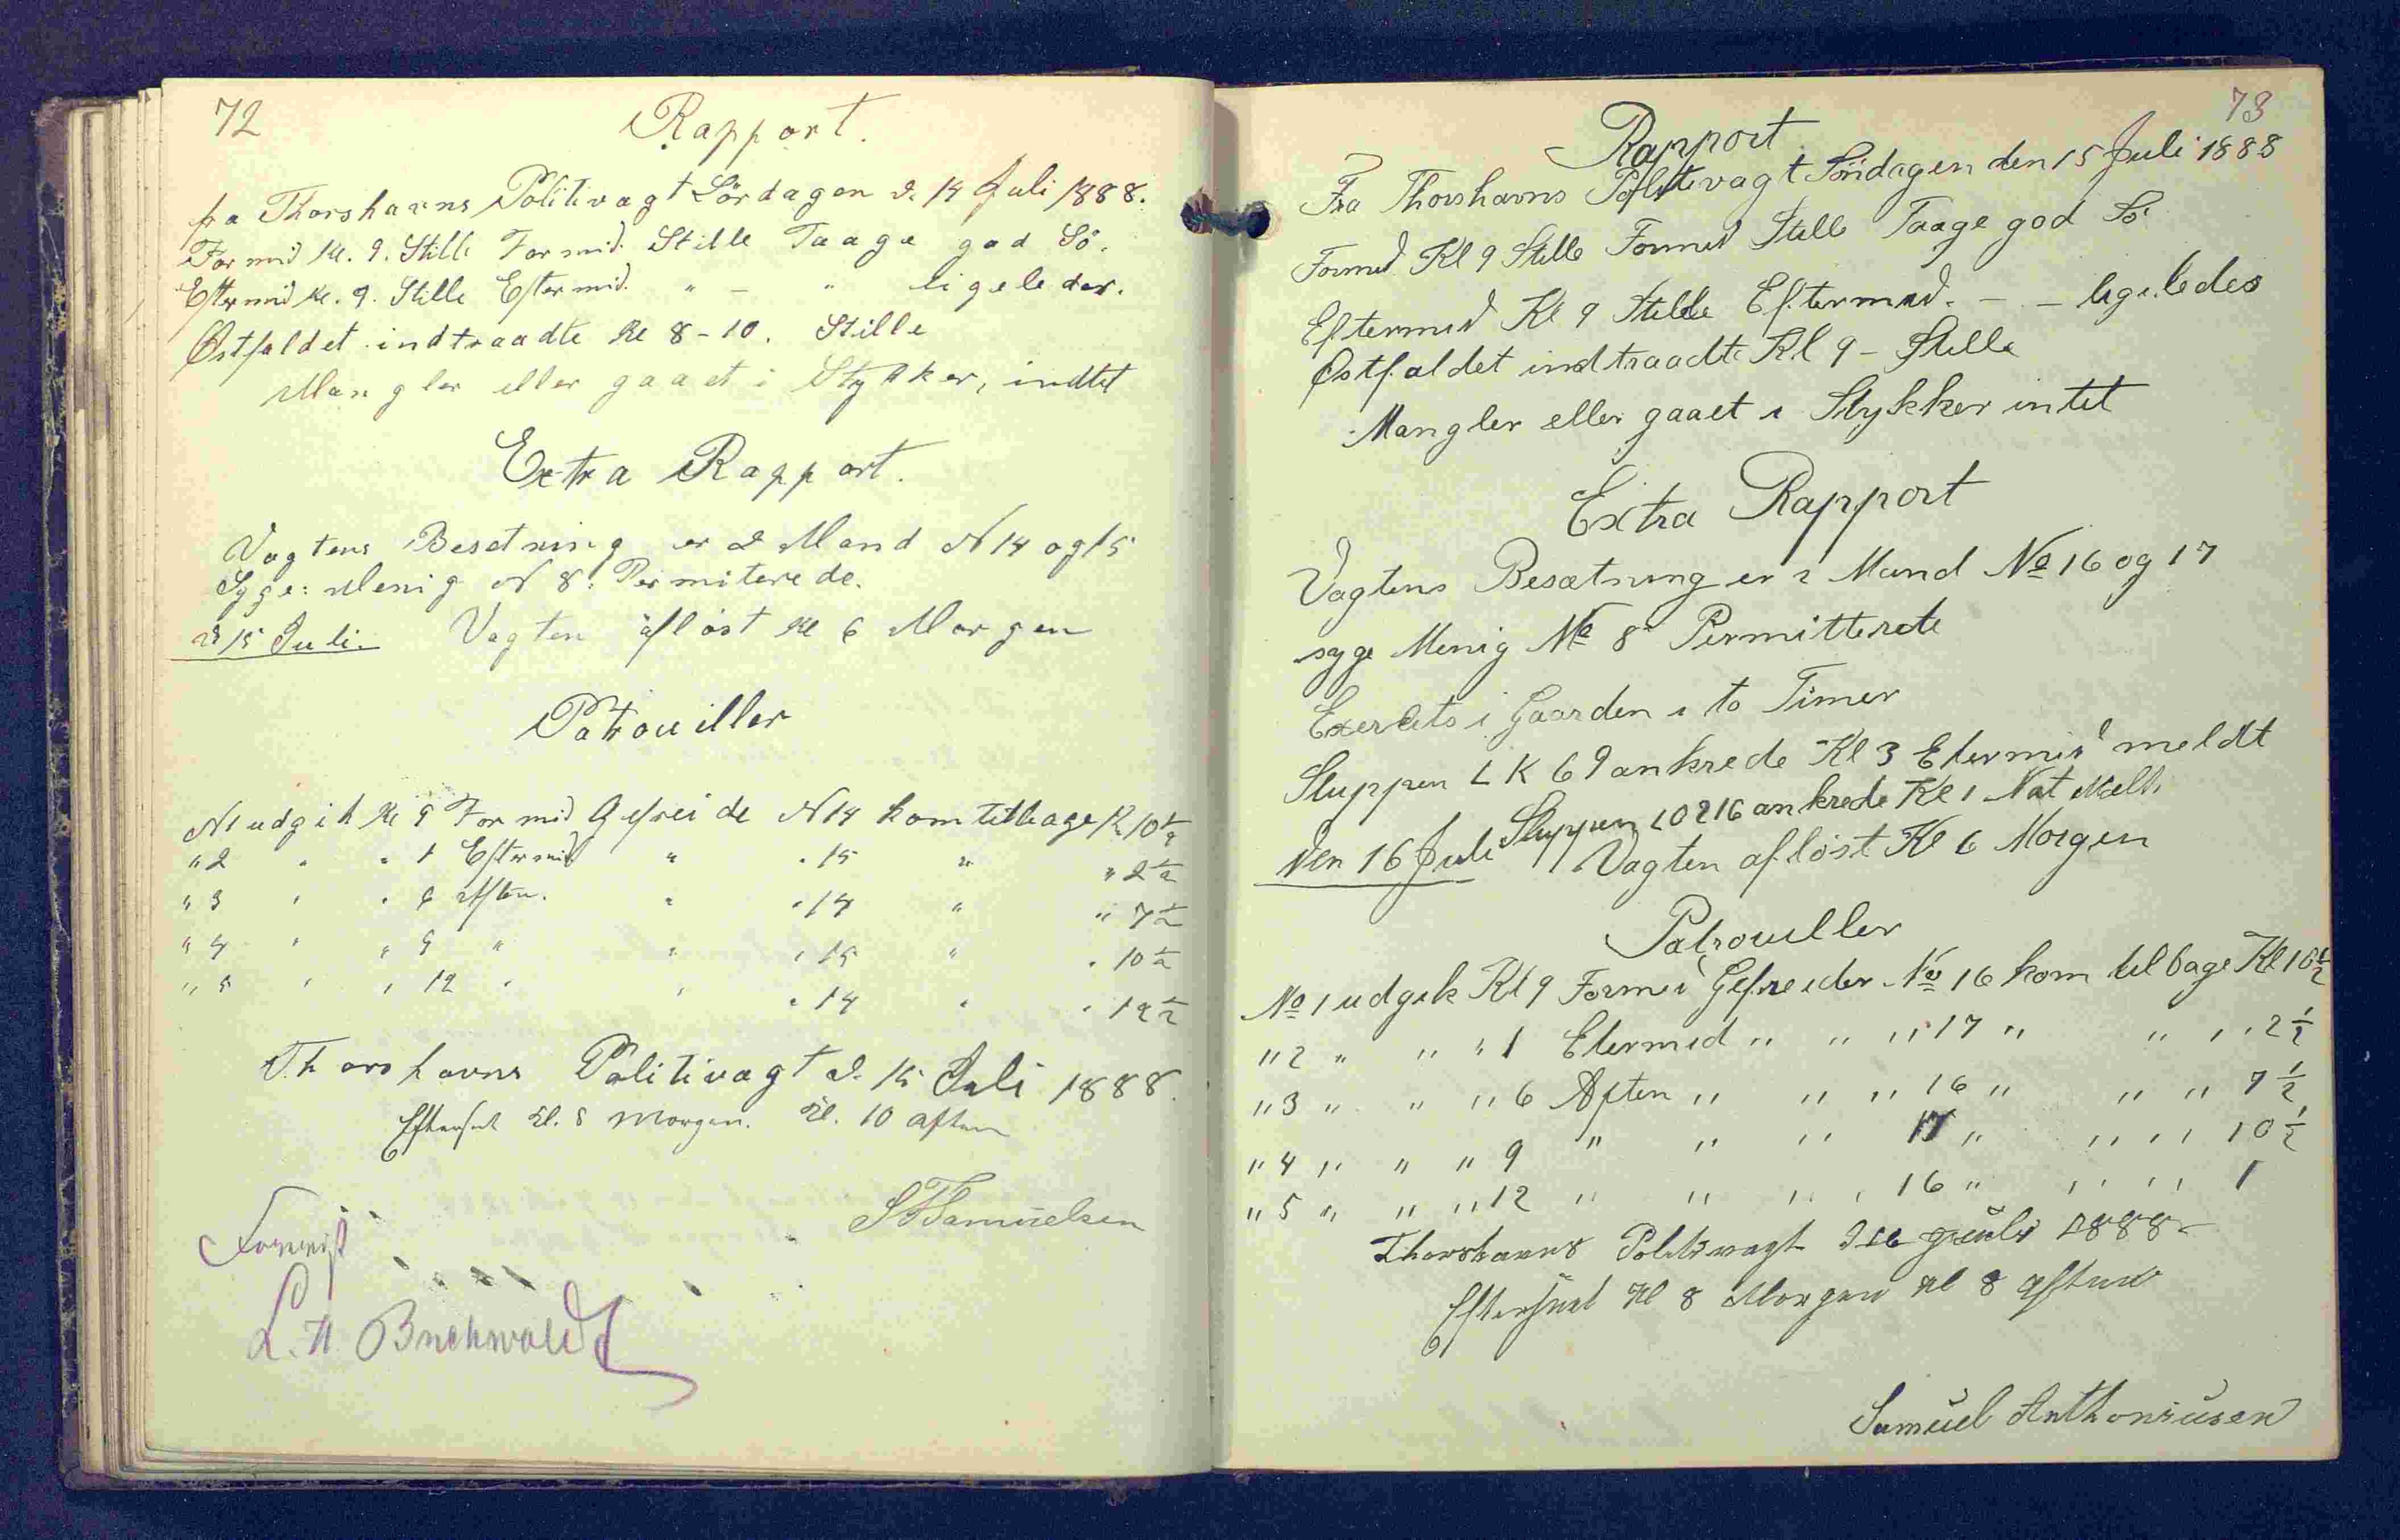 72
Rapport.
fra Thorshavns Politivagt Lördagen d. 14 Juli 1888.
Formid Kl. 9. Stille Formid. Stille Taage god Sö.
Eftermid Kl. 9. Stille Eftermid. " – " ligeledes.
Østfaldet indtraadte Kl 8-10. Stille
Mangler eller gaaet i Stykker, indtet
Extra Rapport.
Vagtens Besetning er 2 Mand N 14 og 15
Syge: Menig N 8: Permiterede.
d. 15 Juli. Vagten afløst Kl 6 Morgen
Patrouiller
N1 udgik Kl 9 Formid Gefreide N14 kom tilbage Kl 10½
" 2 " " 1 Eftermid " " 15 " " 2½
" 3 " " 6 Aften. " " 14 " " 7½
" 4 " " 9 " " " 15 " " 10½
" 5 " " 12 " " " 14 " " 12½
Thorshavns Politivagt d. 15 Juli 1888.
Efterseet Kl. 8 Morgen. Kl. 10 aften
Samuelsen
Forevist
L. A. Buchwaldt
73
Rapport
Fra Thorshavns Politivagt Söndagen den 15 Juli 1888
Formd Kl 9 Stille Formd Stille Taage god Sö
Eftermid Kl 9 Stille Eftermid. – – ligeledes
Østfaldet indtraadte Kl 9 – Stille
Mangler eller gaaet i Stykker intet
Extra Rapport
Vagtens Besætning er 2 Mand No 16 og 17
syge Menig No 8 Permitterete
Exersits i Gaarden i to Timer
Sluppen L K 69 ankrede Kl 3 Etermid meldt
Sluppen LO 216 ankrede Kl 1 Nat Melt.
Den 16 Juli Vagten afløst Kl 6 Morgen
Patrouiller
No 1 udgik Kl 9 Formi Gefreider No 16 kom tilbage Kl 10½
" 2 " " " 1 Etermid " " " 17 " " " " 2½
" 3 " " " 6 Aften " " " 16 " " " 7½
" 4 " " " 9 " " " 17 " " " " 10½
" 5 " " " 12 " " " " 16 " " " " 1
Thorshavns Politivagt d 16 Juli 1888
Efterseet Kl 8 Morgen Kl 8 Aften
Samuel Anthoniusen